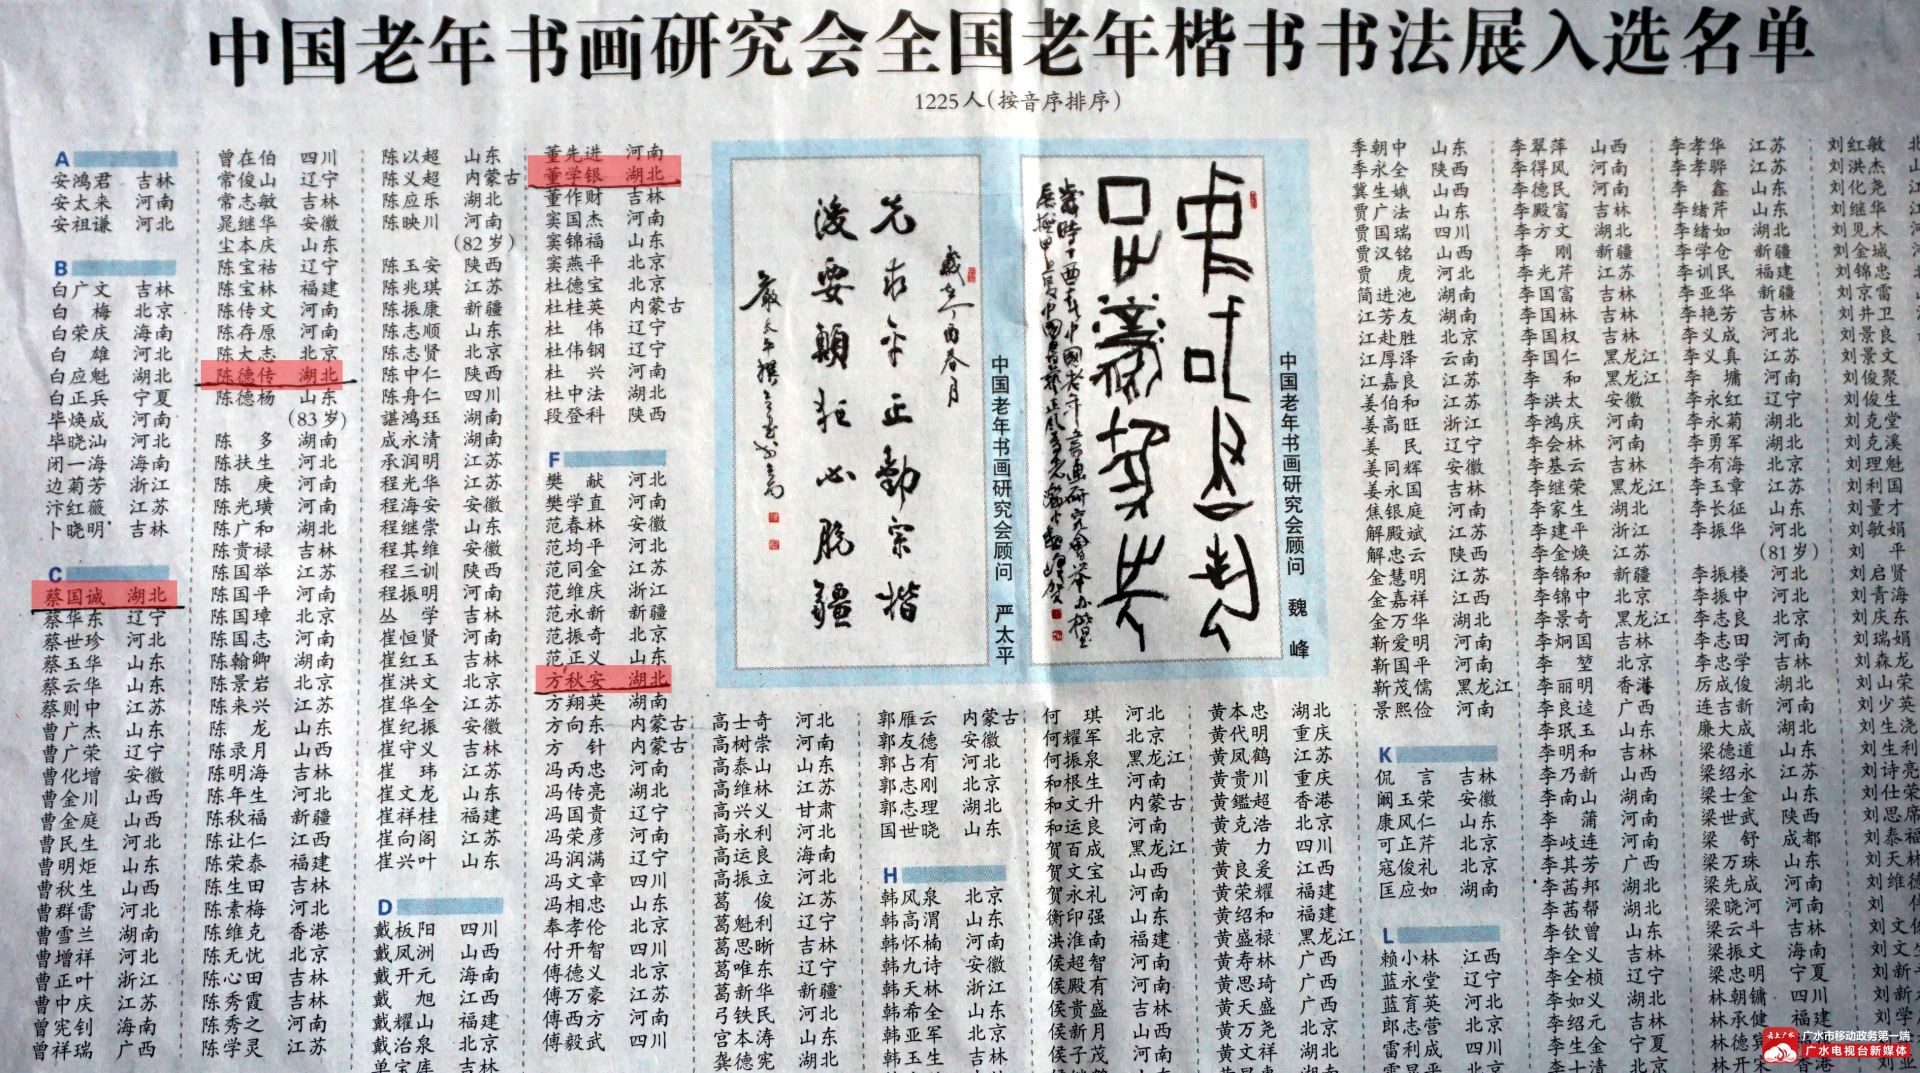 中国老年书画研究会全国老年楷书书法展入选名单
1225人(按音序排序)
A
安鸿君 吉林
安太来 河南
安祖谦 河北
B
白广文 吉林
白 梅 北京
白荣庆 海南
白 雄 河北
白应魁 湖北
白正兵 宁夏
毕焕成 河南
毕晓汕 河北
闭一海 海南
边菊芳 浙江
汴红薇 江苏
卜晓明 吉林
C
蔡国诚 湖北
蔡华东 辽宁
蔡世珍 河南
蔡玉华 山东
蔡云华 山东
蔡则中 江苏
曹广杰 山东
曹广荣 辽宁
曹化增 安徽
曹金川 山西
曹金庭 山西
曹民生 河北
曹明炬 山东
曹秋生 山西
曹群雷 河北
曹雪兰 湖南
曹增祥 河北
曹正叶 浙江
曹中庆 江苏
曾宪钊 海南
曾祥瑞 广西
曾在伯 四川
常俊山 辽宁
常志敏 吉林
晁继华 安徽
尘本庆 山东
陈宝祜 辽宁
陈宝林 福建
陈传文 河南
陈存原 河南
陈大志 北京
陈德传 湖北
陈德杨 山东
(83岁)
陈 多 湖南
陈扶生 河北
陈 庚 河南
陈光璜 河南
陈广和 湖北
陈贵禄 吉林
陈国举 江苏
陈国平 河南
陈国璋 北京
陈国志 河南
陈翰卿 湖南
陈景岩 北京
陈来兴 江苏
陈 龙 山东
陈录月 山西
陈明海 吉林
陈年生 河北
陈秋福 新疆
陈让仁 江西
陈荣泰 福建
陈生田 吉林
陈素梅 河北
陈维克 香港
陈无忧 北京
陈心田 吉林
陈秀霞 吉林
陈秀之 河南
陈学灵 江苏
陈以超 山东
陈义超 内蒙古
陈应乐 湖北
陈映川 河南
(82岁)
陈玉安 陕西
陈兆琪 江苏
陈振康 新疆
陈志顺 山东
陈志贤 北京
陈中仁 陕西
陈舟仁 四川
谌鸿珏 湖南
成永清 湖南
承润明 江苏
程光华 江苏
程海安 安徽
程继崇 山东
程其维 安徽
程三训 陕西
程振明 河南
丛 学 吉林
崔恒贤 河南
崔红玉 吉林
崔洪文 北京
崔华全 江苏
崔纪振 安徽
崔守义 吉林
崔 玮 江苏
崔文龙 山东
崔祥桂 福建
崔向阁 江苏
崔兴叶 山东
D
戴板阳 四川
戴凤洲 山西
戴开元 海南
戴 旭 江西
戴耀山 福建
戴治泉 北京
单宝库 吉林
董先进 河南
董学银 湖北
董作财 吉林
窦国杰 河南
窦锦福 山东
窦燕平 北京
杜德宝 北京
杜桂英 内蒙古
杜 伟 辽宁
杜伟钢 辽宁
杜 兴 河南
杜中法 湖北
段登科 陕西
F
樊 献 河北
樊学直 河南
范春林 安徽
范均平 河北
范同金 江苏
范维庆 浙江
范永新 新疆
范振奇 北京
范正义 山东
方秋安 湖北
方翔英 湖南
方向东 内蒙古
方 针 内蒙古
冯丙忠 河南
冯传亮 湖北
冯国贵 辽宁
冯荣彦 河南
冯润满 辽宁
冯文章 四川
冯相忠 山东
奉孝伦 北京
付开智 四川
傅德义 北京
傅万豪 江苏
傅西方 河南
傅毅武 四川
先求平正勤宗楷
后要颠狂必脱疆
中国老年书画研究会顾问 严太平
中国老年书画研究会顾问 魏峰
高士奇 河北
高树崇 河南
高泰山 山东
高维林 江苏
高兴义 甘肃
高永利 河北
高运良 海南
高振立 河北
葛 俊 江苏
葛魁利 辽宁
葛思晰 吉林
葛唯东 辽宁
葛新华 新疆
弓铁民 河北
宫本涛 山东
龚德宪 湖北
郭雁云 内蒙古
郭友德 安徽
郭占有 河北
郭志刚 北京
郭志理 湖北
国世晓 山东
H
韩风泉 北京
韩高渭 山东
韩怀楠 河南
韩九诗 安徽
韩天林 浙江
韩希全 山东
韩亚军 北京
韩玉生 吉林
何 琪 河北
何耀军 北京
何振泉 黑龙江
和根生 河南
和文升 内蒙古
和运良 河南
贺百成 黑龙江
贺文宝 山西
贺永礼 河南
衡印强 山东
洪淮南 福建
侯超智 河南
侯殿有 河南
侯贵盛 吉林
侯新月 山西
侯子茂 河南
黄本忠 湖北
黄代明 重庆
黄凤鹤 江苏
黄贵川 重庆
黄鑑超 香港
黄克浩 北京
黄 力 四川
黄良爱 江西
黄荣耀 福建
黄绍和 福建
黄盛禄 黑龙江
黄寿林 广西
黄思琦 广西
黄天盛 广西
黄万尧 北京
黄文祥 湖北
季朝中 山东
季永全 陕西
冀生娥 山西
贾广法 山东
贾国瑞 四川
贾汉铭 山西
贾 虎 河北
简进池 湖南
江芳友 湖南
江赴胜 北京
江厚泽 云南
江嘉良 江苏
姜伯和 江苏
姜高旺 浙江
姜 民 辽宁
姜同辉 安徽
姜永国 吉林
焦银庭 河南
解殿斌 江苏
解忠云 陕西
金慧明 江苏
金嘉祥 江西
金万华 湖北
靳爱明 河南
靳国平 河南
靳茂儒 黑龙江
景熙俭 河南
K
侃 言 吉林
阚玉荣 安徽
康风仁 山东
可正芹 北京
寇俊礼 北京
匡应如 湖南
L
赖小林 江西
蓝永堂 辽宁
蓝育英 河北
郎志营 北京
雷利成 四川
李翠萍 山西
李得风 河南
李德民 河南
李殿富 吉林
李方文 湖北
李 刚 新疆
李光芹 江苏
李国富 吉林
李国林 吉林
李国权 吉林
李国仁 黑龙江
李 和 黑龙江
李洪太 安徽
李鸿庆 河南
李会林 河南
李基云 吉林
李继荣 黑龙江
李家生 湖北
李建平 浙江
李金焕 江苏
李锦和 新疆
李锦中 北京
李景奇 黑龙江
李炯国 吉林
李 堃 北京
李丽明 香港
李良逵 广西
李珉玉 山东
李明和 吉林
李乃新 山西
李南山 湖南
李 蒲 河南
李岐连 河南
李其芳 广西
李茜邦 湖北
李茜帮 湖北
李钦曾 山东
李全义 吉林
李全桢 辽宁
李如义 湖北
李绍元 江苏
李生金 宁夏
李孝华 江苏
李孝骅 江苏
李 鑫 山东
李绪芹 山东
李绪如 湖北
李学仓 新疆
李训民 福建
李亚华 新疆
李艳芳 吉林
李义成 河北
李义真 江苏
李 墉 河南
李永红 辽宁
李永菊 湖北
李勇军 湖北
李有海 北京
李玉章 江苏
李长征 山东
李振华 河北
(81岁)
李振楼 河北
李振中 河北
李志良 北京
李志田 河南
李忠学 吉林
厉成俊 湖北
连吉新 河南
廉大成 湖北
梁德道 山东
梁绍永 江苏
梁士金 山东
梁世武 陕西
梁 舒 成都
梁万珠 山东
梁先成 河南
梁晓河 河南
梁云斗 吉林
梁振文 海南
梁忠明 宁夏
林朝镛 四川
林承健 福建
刘红敏
刘洪杰
刘化尧
刘继华
刘见木
刘金城
刘锦忠
刘京雷
刘井卫
刘景良
刘景文
刘俊聚
刘俊生
刘克堂
刘克溪
刘理魁
刘利国
刘量才
刘敏娟
刘 平
刘启贤
刘青海
刘庆东
刘瑞娟
刘森龙
刘山荣
刘少英
刘生浇
刘生利
刘诗亮
刘仕荣
刘思席
刘泰福
刘天林
刘维德
广水市移动政务第一端
广水电视台新媒体